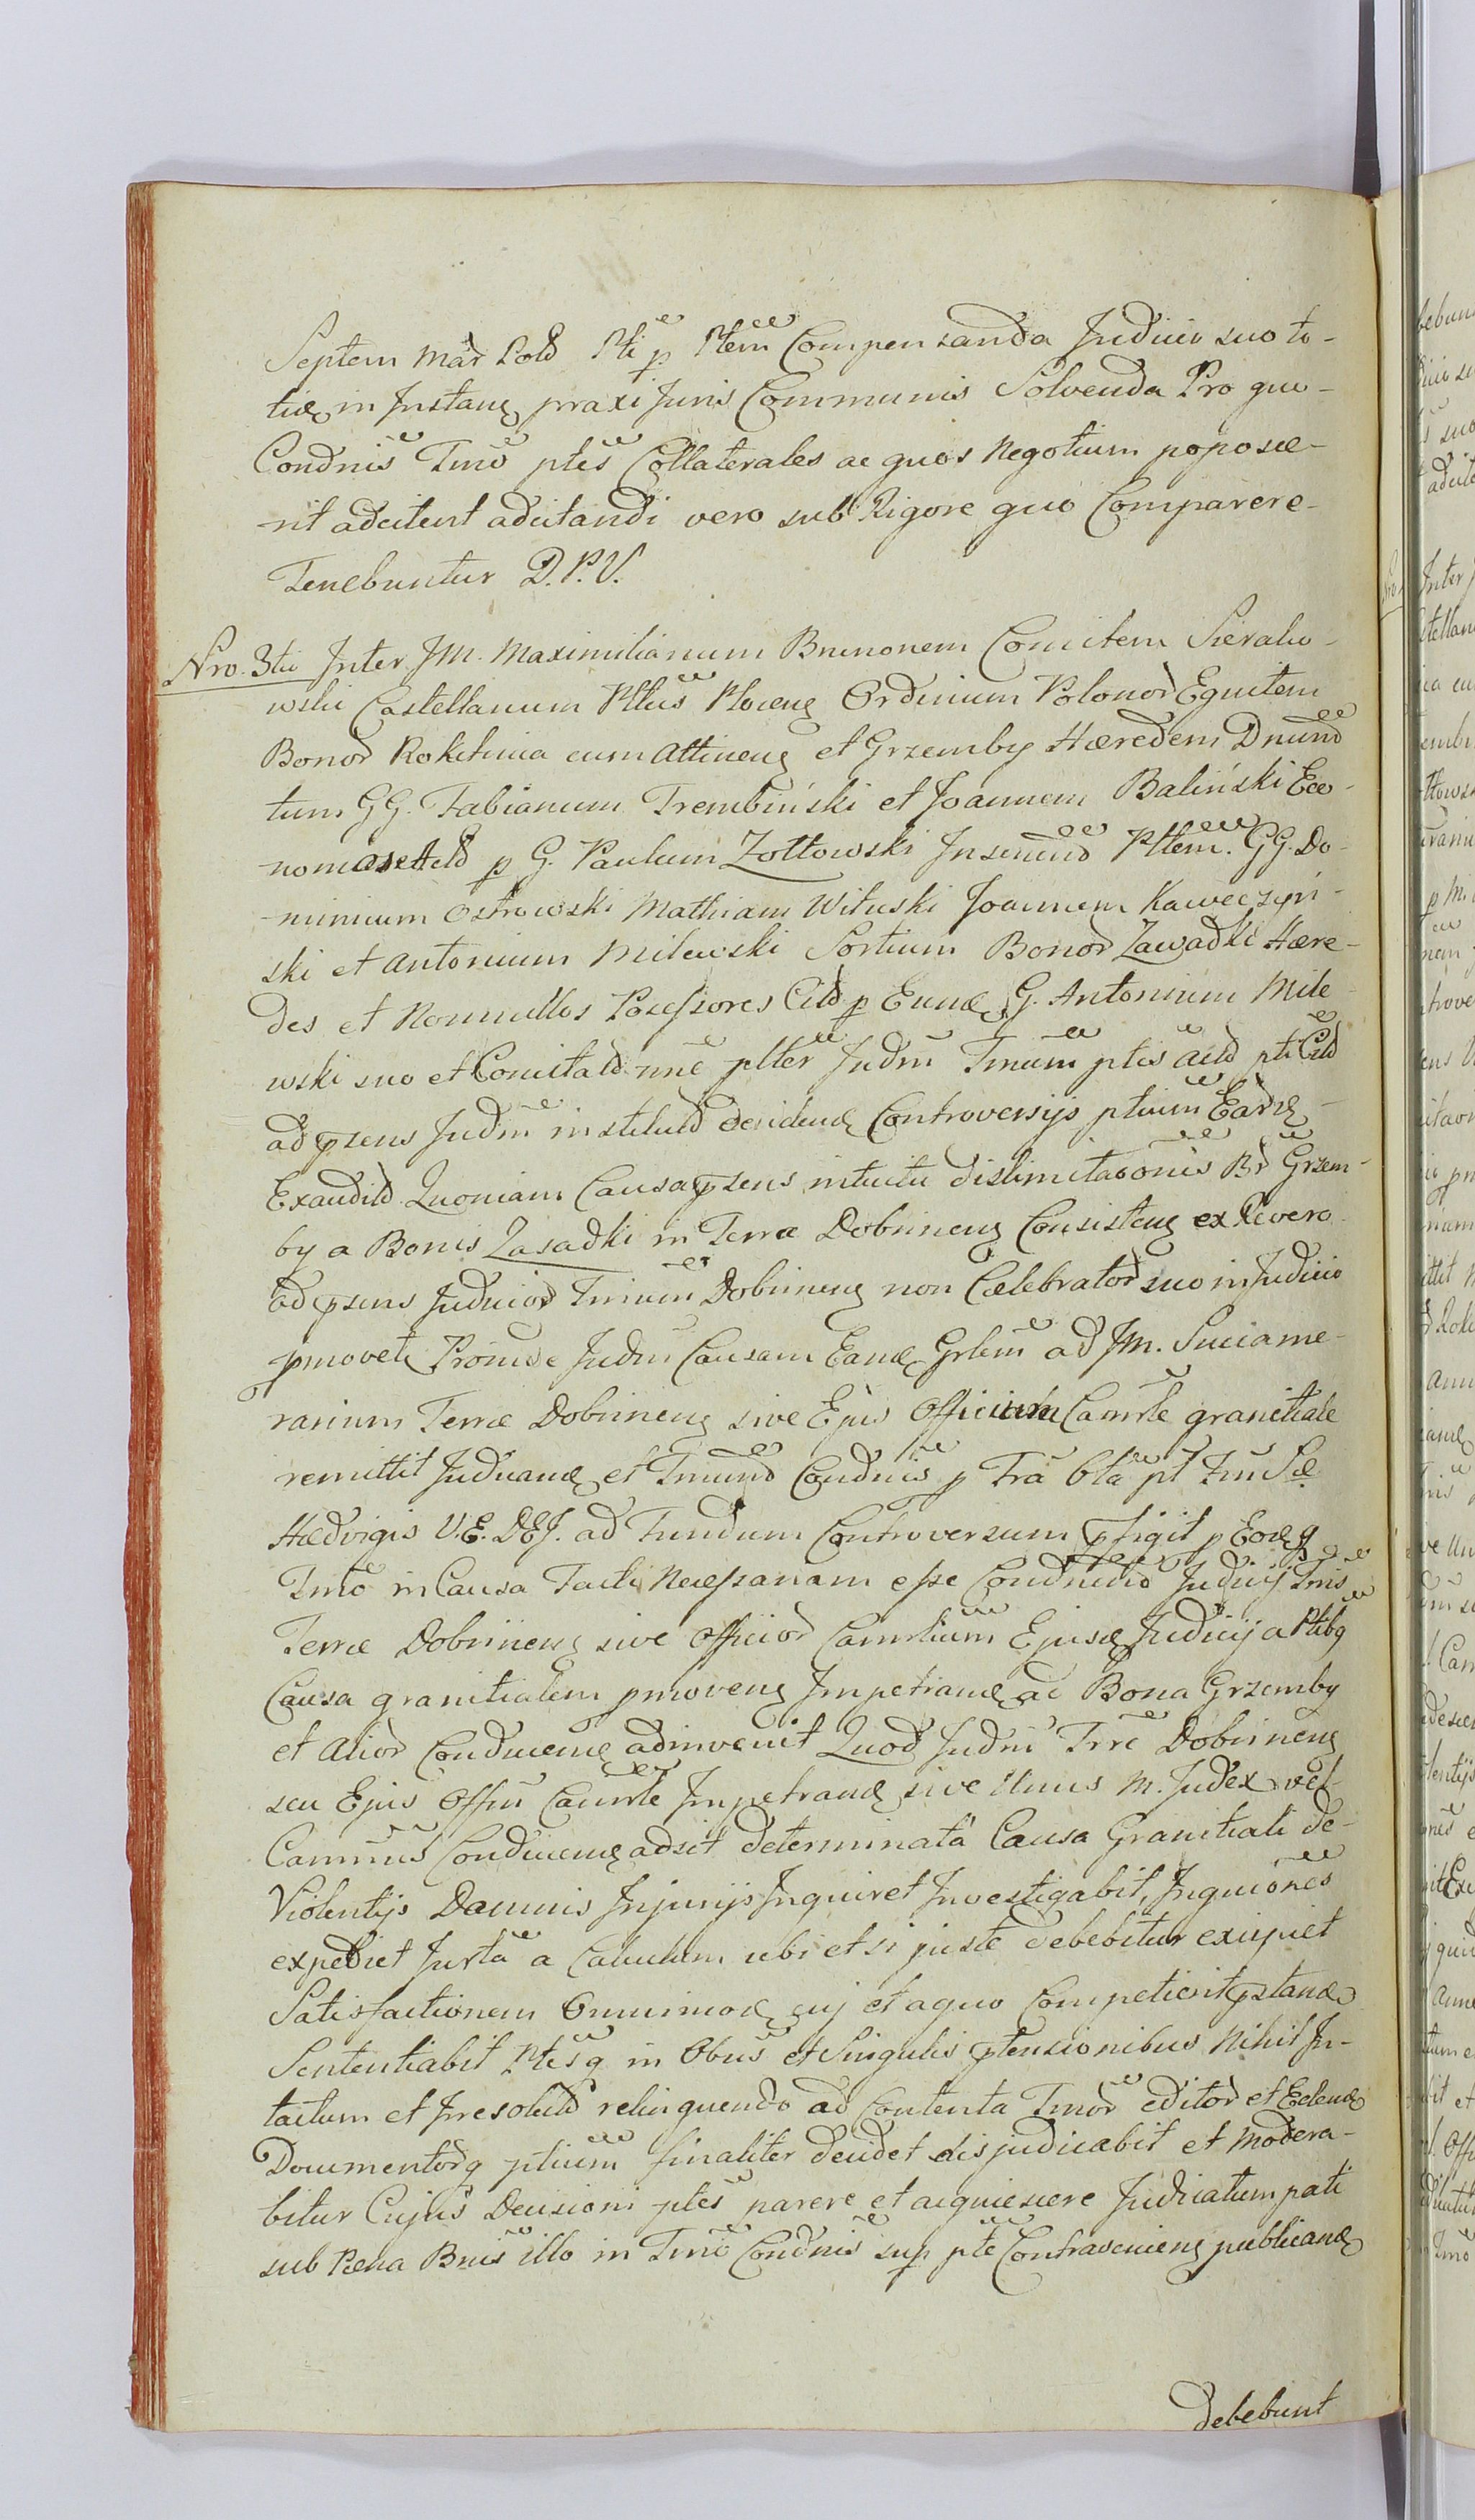 Septem Mar Pold Pti p Ptem Compensanda Judicio suo to-
ties in Instanti praxi Juris Communis Solvenda Pro quo-
Condnis Tmo ptes Collaterales ac quos Negotium poposce-
rit adcitent adcitandi vero sub Rigore quo Comparere-
Tenebuntur D.P.V.
Nro. 3tii Inter JM. Maximilianum Brunonem Comitem Sierako-
wski Castellanum Pttus Plocens Ordinium Polonor Equitem
Bonor Rokitnica cum Attinens et Grzemby Hæredem
tum GG. Fabianum Trembiński et Joannem Baliński Eco-
nomos p G. Paulum Zołtowski GG. Do-
minicum Ostrowski Mathiam Wituski Joannem Kaweczyń-
ski et Antonium Milewski Sortium Bonor Zawadki Hære-
des et Nonnullos Possessores Citd p Eund G. Antonium Mile-
wski suo et nne plter Judm Tmum ptis acti pti Citd
ad psens Judm institutd decidend Controversijs ptium Eard
Exauditd Quoniam Causa psens intuitu dislimitaonis Br Grzem-
by a Bonis Zasadki in Terra Dobrinens Consistens ex Revero
ad psens Judicior Tmum Dobrinens non Celebrator suo in Judicio
pmovet Proinde Judm Causam Eand Grlem ad JM. Succame-
rarium Terræ Dobrinens sive Ejus Officium Camrle granitiale
remittit Judicand et Tmum Condnis p Tra 6ta pt Fm Sæ
Hedvigis V.E. DEJ. ad Fundum Controversum pfigit p Eosq
Tmo in Causa Tacti Necessariam esse Judicij Tris
Terræ Dobrinens sive Officior Camrlium Ejusd Judicij a Ptibq
Causa granitialem pmovens Impetrand ac Bona Grzemby
et Alior Conducend adinvenit Quod Judm Trre Dobrinens
seu Ejus Offm Camrle Impetrand sive Unus M. Judex vel
Camrius Conducend adsit determinata Causa Granitiali de-
Violentijs Damnis Injurijs Inquiret Investigabit, Inquiones
expediet Jurta a Calculum ubi et si juste debebitur excipiet
Satisfactionem Omnimod cuj et a quo Competierit pstand
Sententiabit Ptesq in Obus et Singulis ptensionibus Nihil In-
tactum et Irresolutd relinquendo ad Contenta Tmor editor et Edend
Documentorq ptium finaliter decidet disjudicabit et Modera-
bitur Cujus Decisioni ptes parere et acquiescere Judicatum pati
sub Pæna Bnis illo in Tmo Condnis sup pte Contraveniens publicand
debebunt